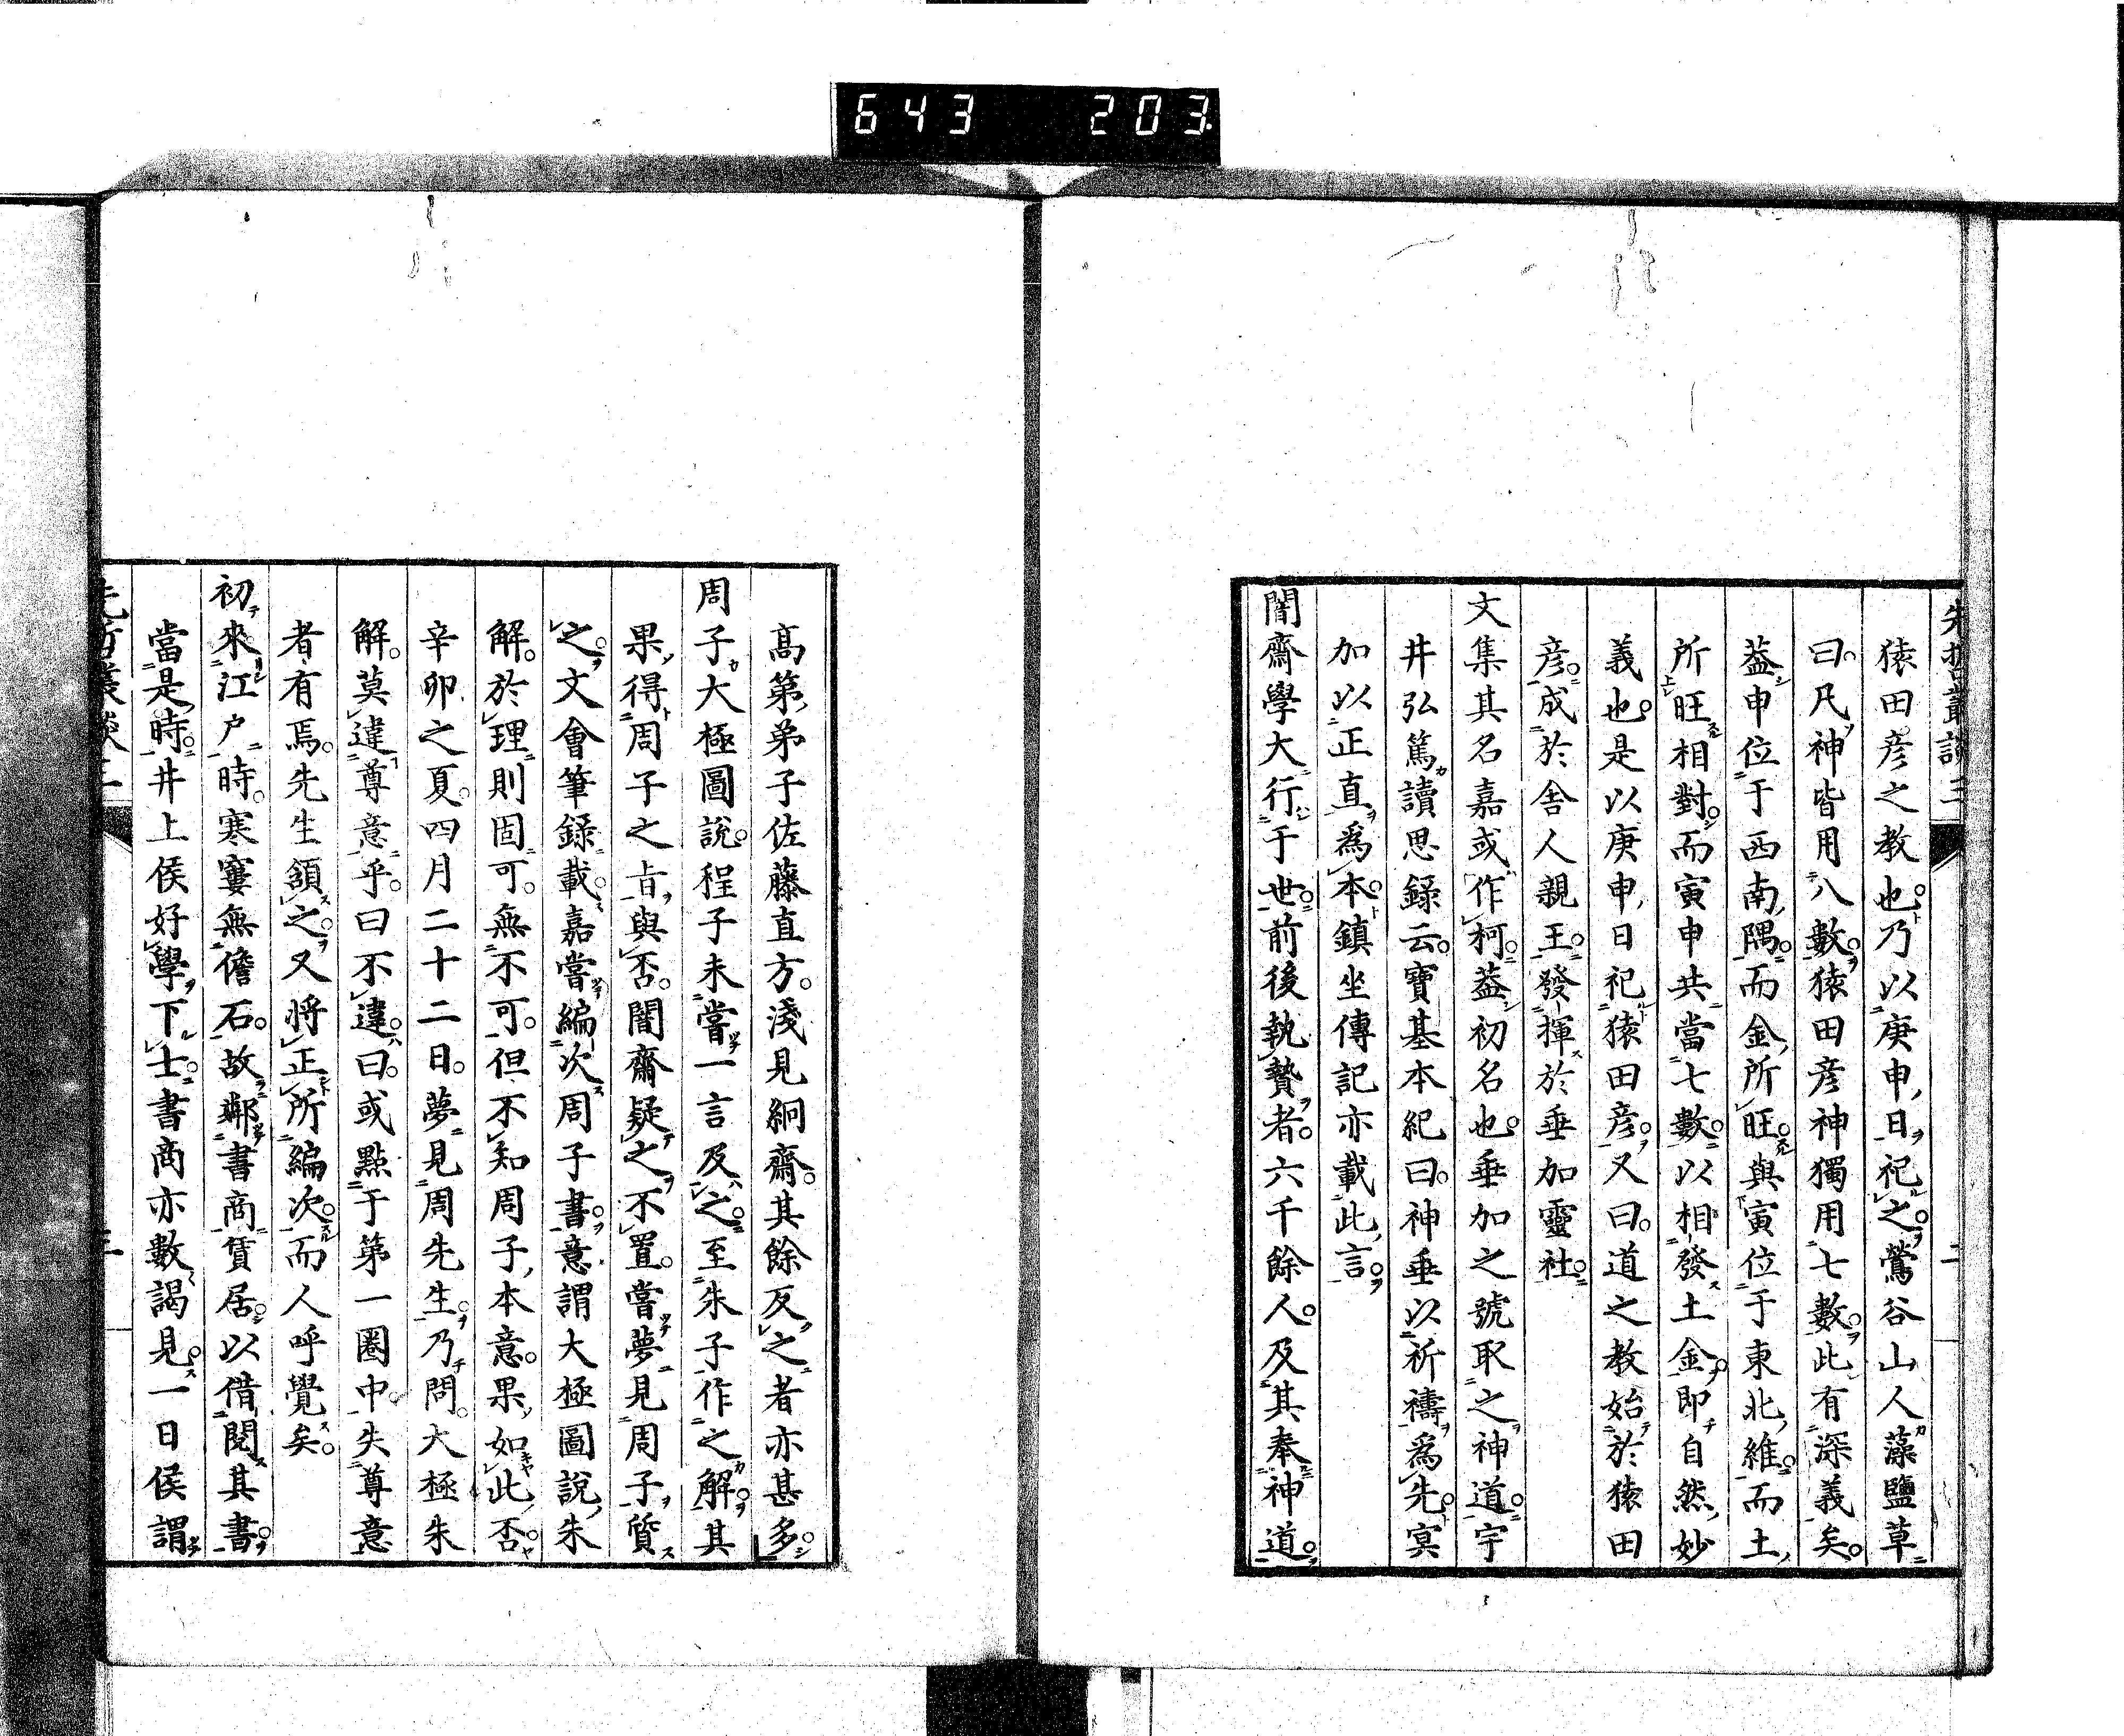 643 203
先哲叢談三 二
猿田彦之教也乃以庚申日祀之鶯谷山人藻鹽草
曰凡神皆用八數猿田彦神獨用七數此有深義矣
葢申位于西南隅而金所旺與寅位于東北維而土
所旺相對而寅申共當七數以相發土金即自然妙
義也是以庚申日祀猿田彦又曰道之教始於猿田
彦成於舍人親王發揮於垂加靈社
文集其名嘉或作柯葢初名也垂加之號取之神道宇
井弘篤讀思録云寶基本紀曰神垂以祈禱爲先冥
加以正直爲本鎮坐傳記亦載此言
闇齋學大行于世前後執贄者六千餘人及其奉神道
高第弟子佐藤直方淺見絅齋其餘反之者亦甚多
周子大極圖說程子未嘗一言及之至朱子作之解其
果得周子之㫖與否闇齋疑之不置嘗夢見周子質
之文會筆録載嘉嘗編次周子書意謂大極圖說朱
解於理則固可無不可但不知周子本意果如此否
辛卯之夏四月二十二日夢見周先生乃問大極朱
解莫違尊意乎曰不違曰或點于第一圈中失尊意
者有焉先生頷之又將正所編次而人呼覺矣
初來江戸時寒窶無儋石故鄰書商賃居以借閱其書
當是時井上侯好學下士書商亦數謁見一日侯謂
先哲叢談三 三